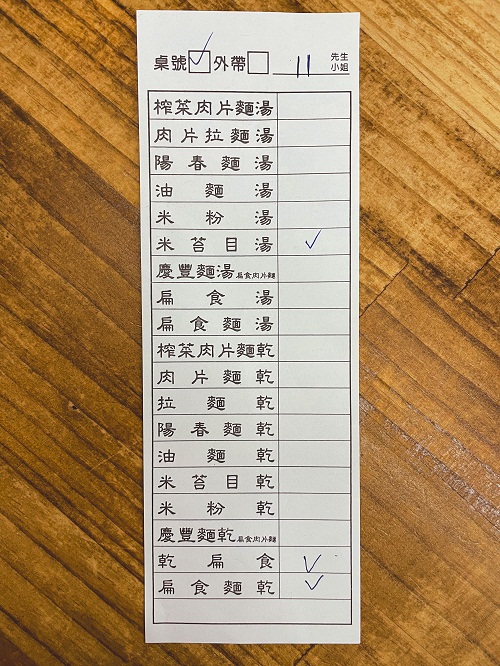 桌號☑ 外帶☐ 11 先生小姐
榨菜肉片麵湯
肉片拉麵湯
陽春麵湯
油麵湯
米粉湯
米苔目湯 ✓
慶豐麵湯扁食肉片麵
扁食湯
扁食麵湯
榨菜肉片麵乾
肉片麵乾
拉麵乾
陽春麵乾
油麵乾
米苔目乾
米粉乾
慶豐麵乾扁食肉片麵
乾扁食 ✓
扁食麵乾 ✓